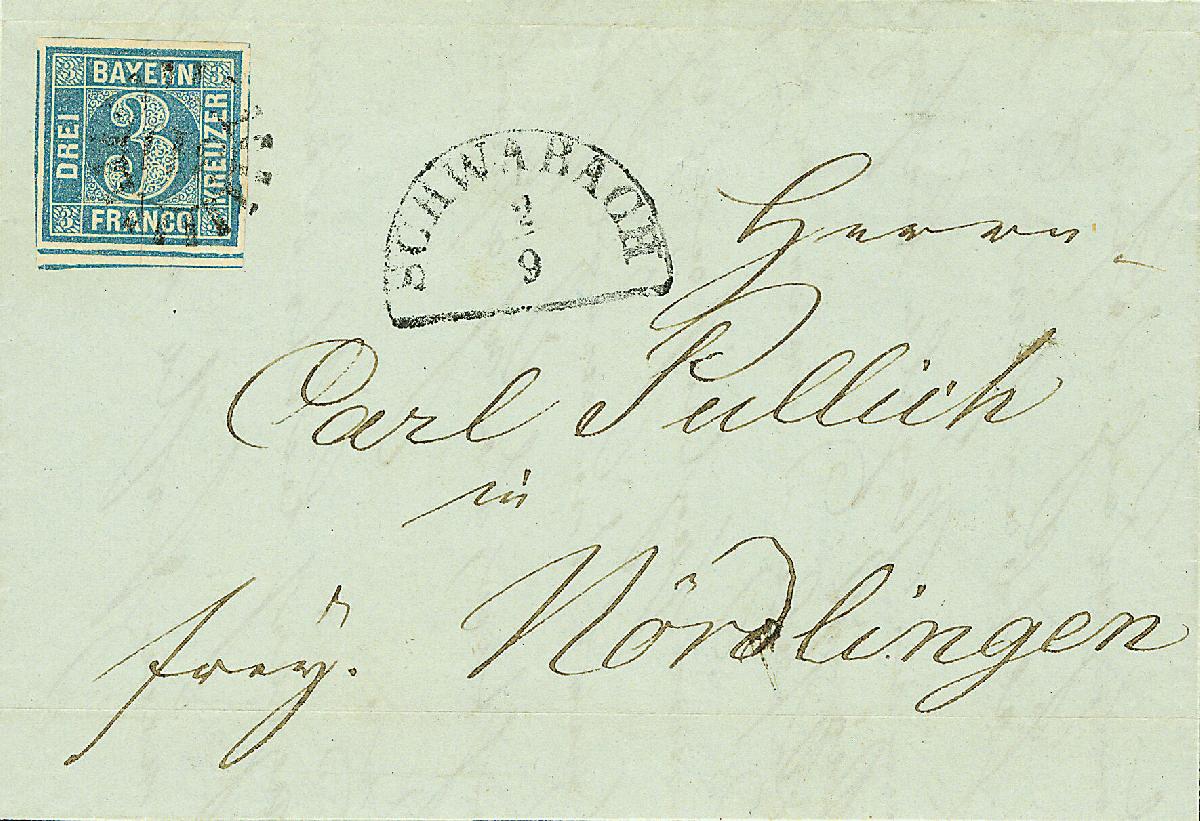 3 BAYERN 3
DREI 3 KREUZER
3 FRANCO
SCHWABACH
2
9
Herrn
Carl Pullich
in
Nördlingen
frey.